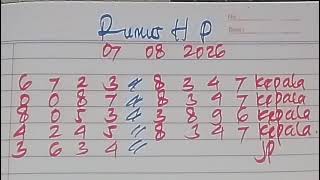 No :
Date :
Rumus H P
07 08 2026
6 7 2 3 // 8 3 4 7 kepala
0 0 8 7 // 8 3 4 7 kepala
8 0 5 3 // 3 8 9 6 kepala
4 2 4 5 // 8 3 4 7 kepala.
3 6 3 4 // JP